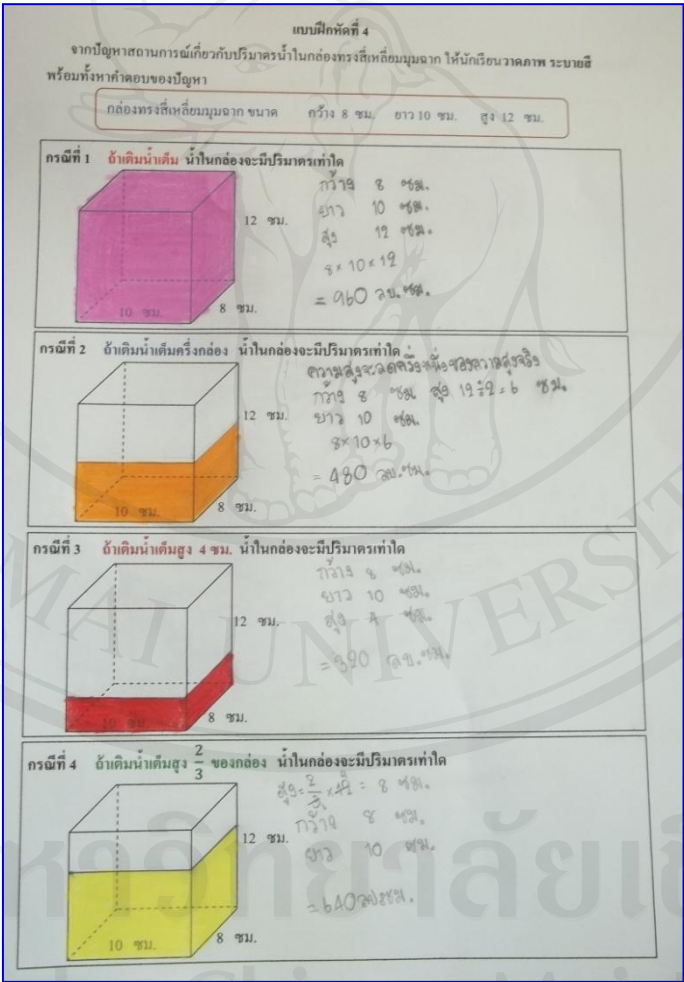 แบบฝึกหัดที่ 4
จากปัญหาสถานการณ์เกี่ยวกับปริมาตรน้ำในกล่องทรงสี่เหลี่ยมมุมฉาก ให้นักเรียนวาดภาพ ระบายสี
พร้อมทั้งหาคำตอบของปัญหา
กล่องทรงสี่เหลี่ยมมุมฉาก ขนาด กว้าง 8 ซม. ยาว 10 ซม. สูง 12 ซม.
กรณีที่ 1 ถ้าเติมน้ำเต็ม น้ำในกล่องจะมีปริมาตรเท่าใด
กว้าง 8 ซม.
ยาว 10 ซม.
สูง 12 ซม.
8 × 10 × 12
= 960 ลบ.ซม.
12 ซม.
10 ซม.
8 ซม.
กรณีที่ 2 ถ้าเติมน้ำเต็มครึ่งกล่อง น้ำในกล่องจะมีปริมาตรเท่าใด
ความสูงจะลดครึ่งหนึ่งของความสูงจริง
กว้าง 8 ซม สูง 12 ÷ 2 = 6 ซม.
ยาว 10 ซม.
8 × 10 × 6
= 480 ลบ.ซม.
12 ซม.
10 ซม.
8 ซม.
กรณีที่ 3 ถ้าเติมน้ำเต็มสูง 4 ซม. น้ำในกล่องจะมีปริมาตรเท่าใด
กว้าง 8 ซม.
ยาว 10 ซม.
สูง 4 ซม.
= 320 ลบ.ซม.
12 ซม.
10 ซม.
8 ซม.
กรณีที่ 4 ถ้าเติมน้ำเต็มสูง 2/3 ของกล่อง น้ำในกล่องจะมีปริมาตรเท่าใด
สูง = 2/3 × 12 = 8 ซม.
กว้าง 8 ซม.
ยาว 10 ซม.
= 640 ลบ.ซม.
12 ซม.
10 ซม.
8 ซม.